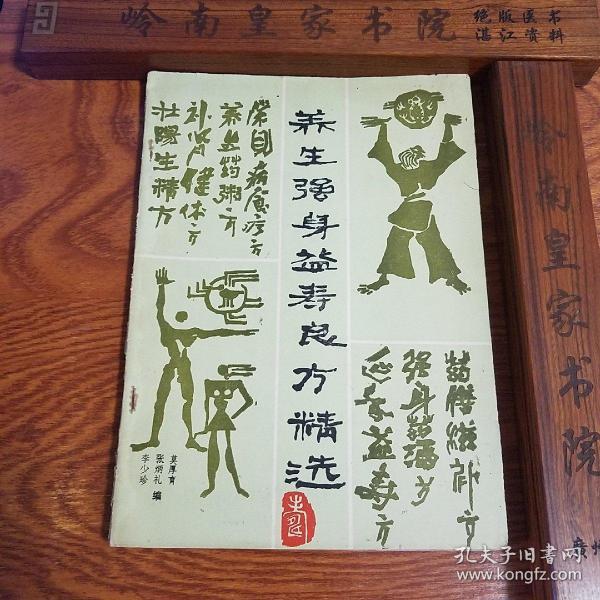 岭南皇家书院
绝版医书
湛江资料
养生强身益寿良方精选
常见病食疗方
养生药粥方
补肾健体方
壮阳生精方
药膳滋补方
强身药酒方
延年益寿方
莫厚育
张炳礼
李少珍
编
岭南皇家书院
廣州
孔夫子旧书网
www.kongfz.com